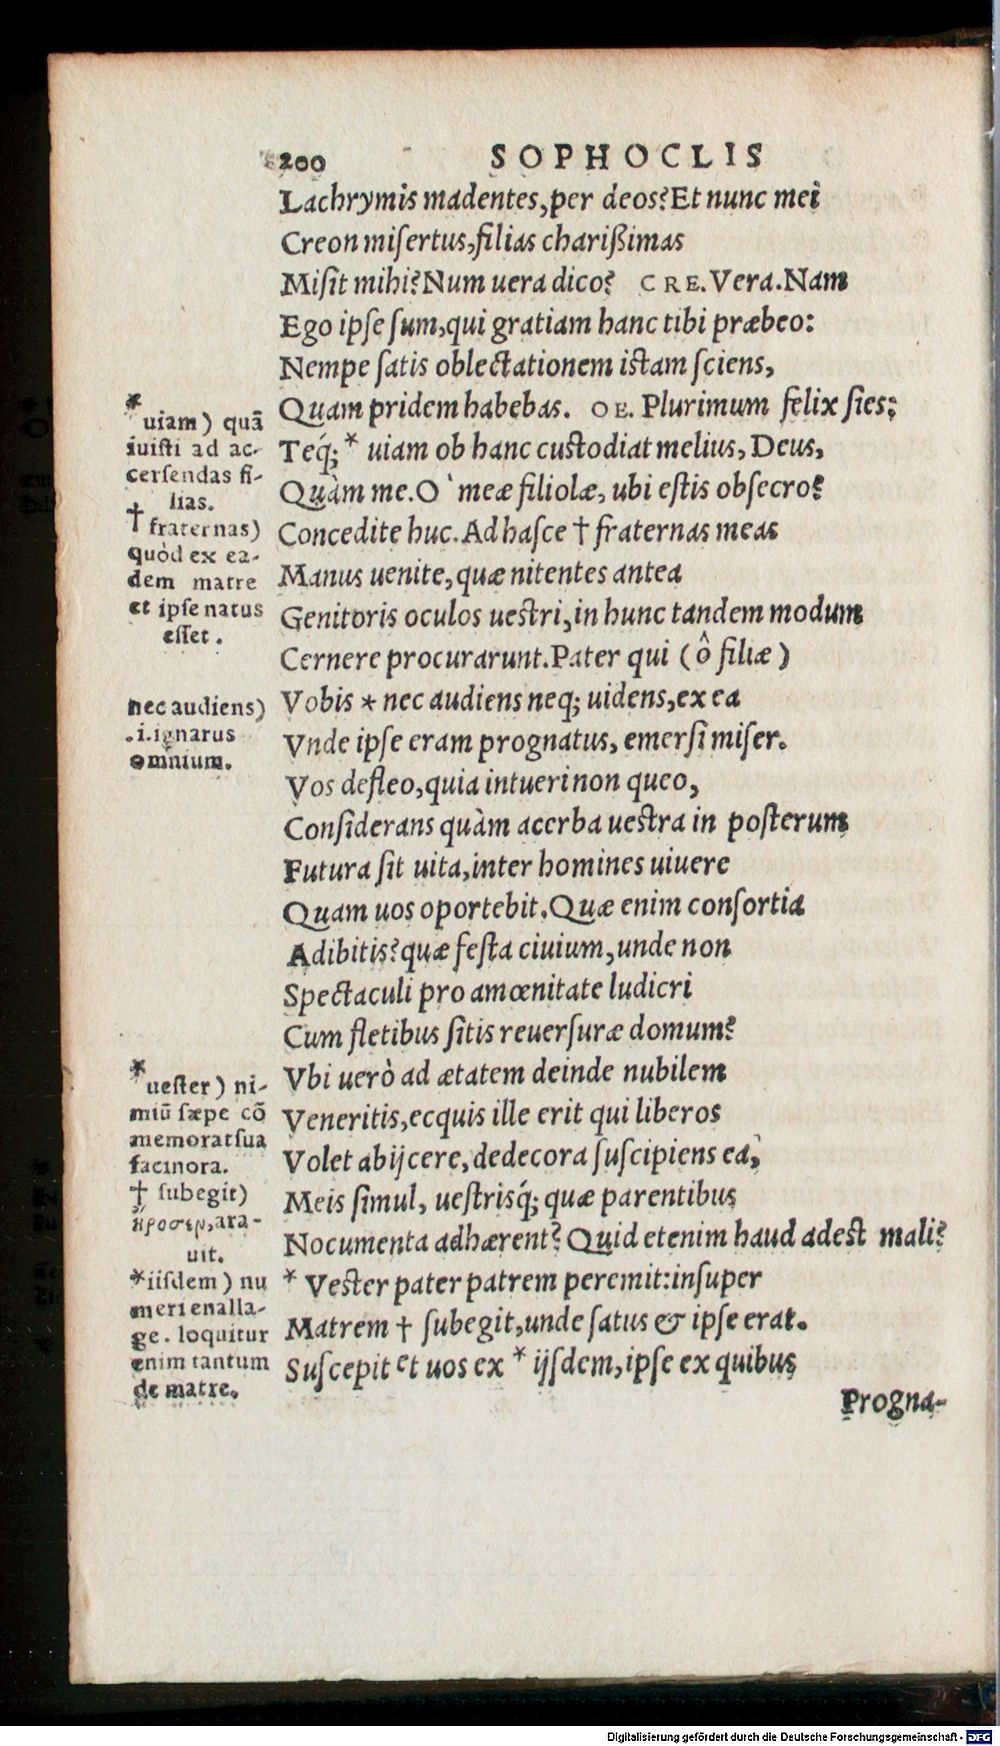 200 SOPHOCLIS
Lachrymis madentes, per deos? Et nunc mei
Creon miſertus, filias charißimas
Miſit mihi? Num uera dico? CRE. Vera. Nam
Ego ipſe ſum, qui gratiam hanc tibi præbeo:
Nempe ſatis oblectationem iſtam ſciens,
Quam pridem habebas. OE. Plurimum felix ſies;
Teq́; * uiam ob hanc cuſtodiat melius, Deus,
Quàm me. O` meæ filiolæ, ubi eſtis obſecro?
Concedite huc. Ad haſce † fraternas meas
Manus uenite, quæ nitentes antea
Genitoris oculos ueſtri, in hunc tandem modum
Cernere procurarunt. Pater qui (ô filiæ)
Vobis * nec audiens neq; uidens, ex ea
Vnde ipſe eram prognatus, emerſi miſer.
Vos defleo, quia intueri non queo,
Conſiderans quàm acerba ueſtra in poſterum
Futura ſit uita, inter homines uiuere
Quam uos oportebit. Quæ enim conſortia
Adibitis? quæ feſta ciuium, unde non
Spectaculi pro amœnitate ludicri
Cum fletibus ſitis reuerſuræ domum?
Vbi uerò ad ætatem deinde nubilem
Veneritis, ecquis ille erit qui liberos
Volet abijcere, dedecora ſuſcipiens ea,
Meis ſimul, ueſtrisq́; quæ parentibus
Nocumenta adhærent? Quid etenim haud adest mali?
* Veſter pater patrem peremit: inſuper
Matrem † ſubegit, unde ſatus & ipſe erat.
Suſcepit et uos ex * ijſdem, ipſe ex quibus
Progna-
*
uiam) quã
iuiſti ad ac-
cerſendas fi-
lias.
† fraternas)
quòd ex ea-
dem matre
et ipſe natus
eſſet.
nec audiens)
.i. ignarus
omnium.
*
ueſter) ni-
miũ ſæpe cõ
memorat ſua
facinora.
† ſubegit)
ἤροσεν, ara-
uit.
*iiſdem) nu
meri enalla-
ge. loquitur
enim tantum
de matre.
Digitalisierung gefördert durch die Deutsche Forschungsgemeinschaft - DFG